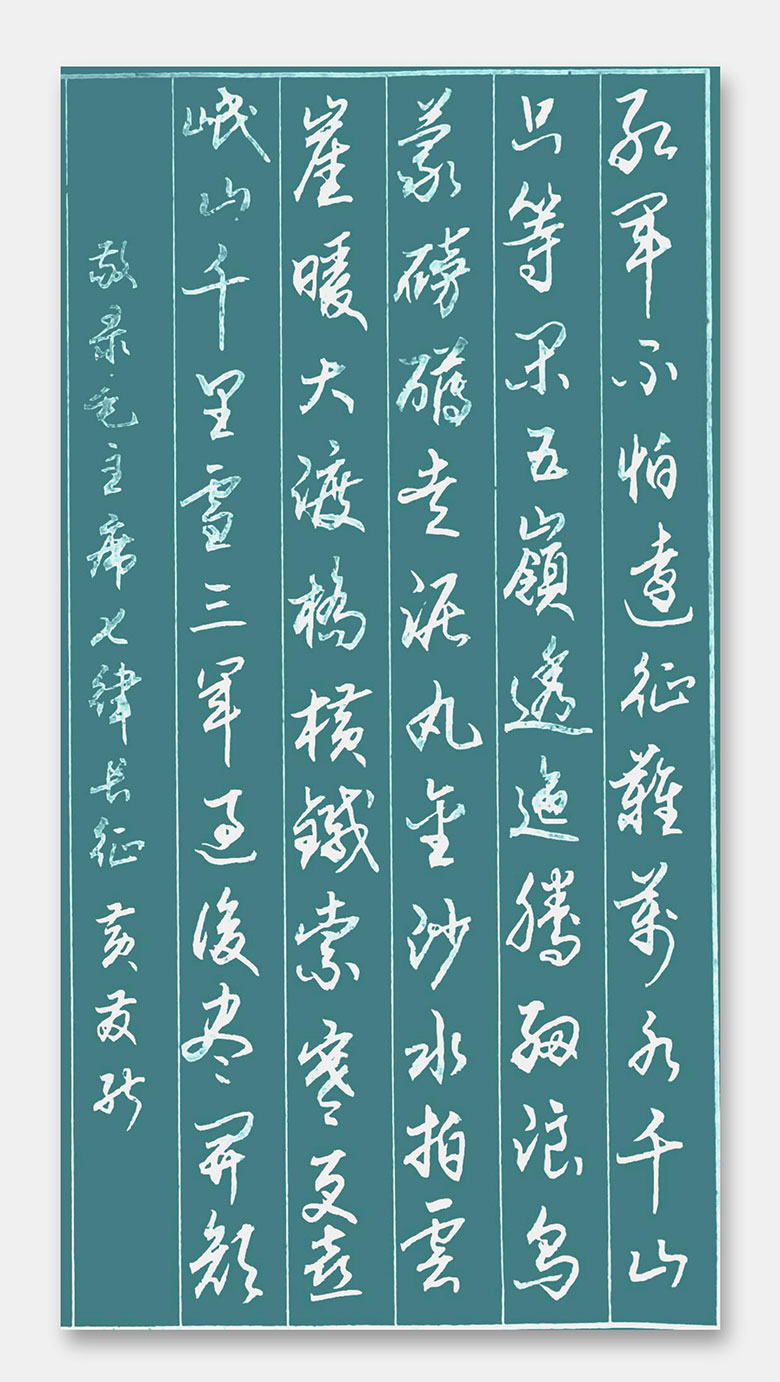 紅軍不怕遠征難萬水千山
只等閑五嶺逶迤騰細浪烏
蒙磅礴走泥丸金沙水拍雲
崖暖大渡橋橫鐵索寒更喜
岷山千里雪三軍過後盡開顏
敬录毛主席七律長征 黄